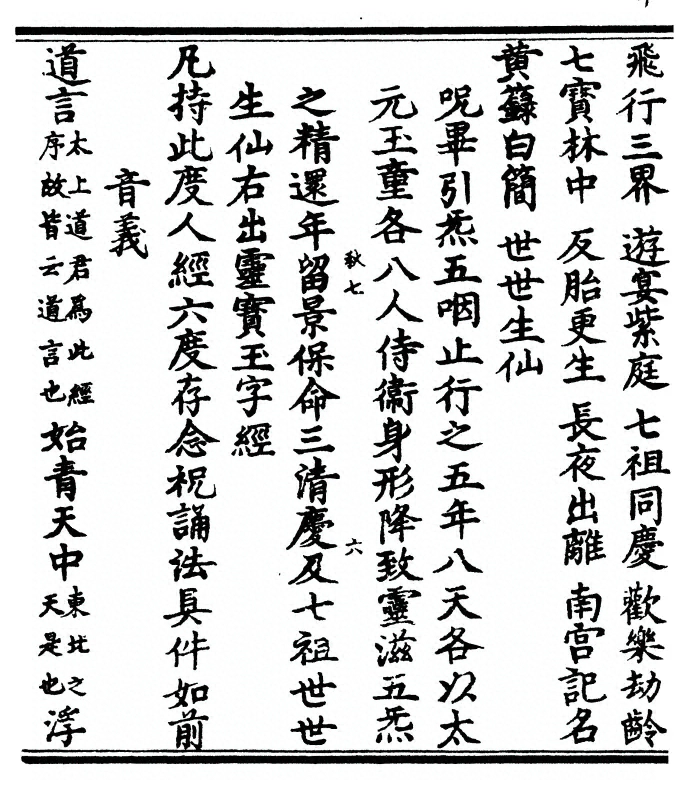 飛行三界　遊宴紫庭　七祖同慶　歡樂劫齡
七寶林中　反胎更生　長夜出離　南宮記名
黃籙白簡　世世生仙
呪畢引炁五咽止行之五年八天各以太
元玉童各八人侍衛身形降致靈滋五炁
秋七
六
之精還年留景保命三清慶及七祖世世
生仙右出靈寶玉字經
凡持此度人經六度存念祝誦法具件如前
音義
道言太上道君爲此經序故皆云道言也始青天中東北之天是也浮